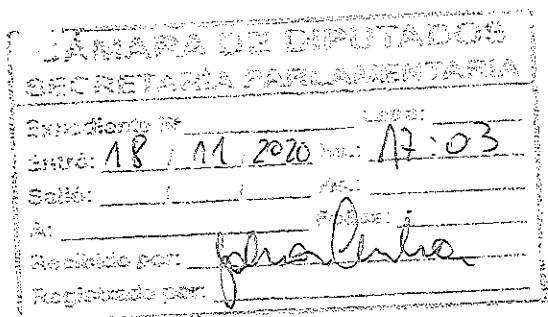 CÁMARA DE DIPUTADOS
SECRETARÍA PARLAMENTARIA
Expediente Nº
Entró: 18 / 11 / 2020 Hs.: 17:03
Salió: / / Hs.:
A:
Recibido por:
Registrado por: